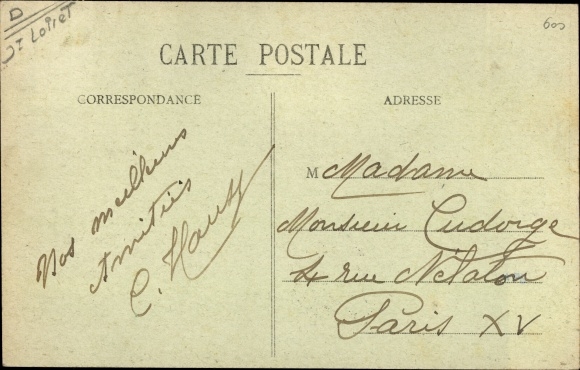 D
Loiret
600
CARTE POSTALE
CORRESPONDANCE
Nos meilleurs
Amitiés
C.
ADRESSE
M Madame
Monsieur
4 rue Nélaton
Paris XV